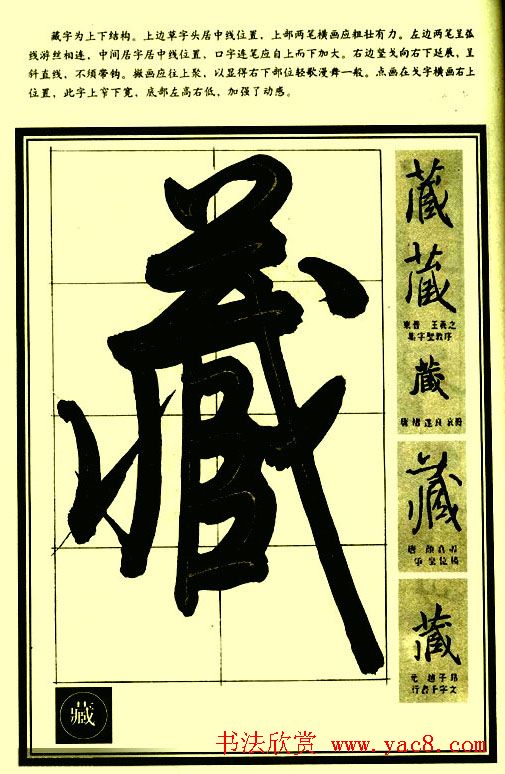 藏字为上下结构。上边草字头居中线位置，上部两笔横画应粗壮有力。左边两笔呈弧
线游丝相连，中间居字居中线位置，口字连笔应自上而下加大。右边竖戈向右下延展，呈
斜直线，不须带钩。撇画应往上聚，以显得右下部位轻歌漫舞一般。点画在戈字横画右上
位置，此字上窄下宽，底部左高右低，加强了动感。
藏
藏
藏
東晋 王羲之
集字聖教序
藏
唐 褚遂良 哀册
藏
唐 顔真卿
争座位稿
藏
元 趙子昂
行書千字文
藏
书法欣赏 www.yac8.com